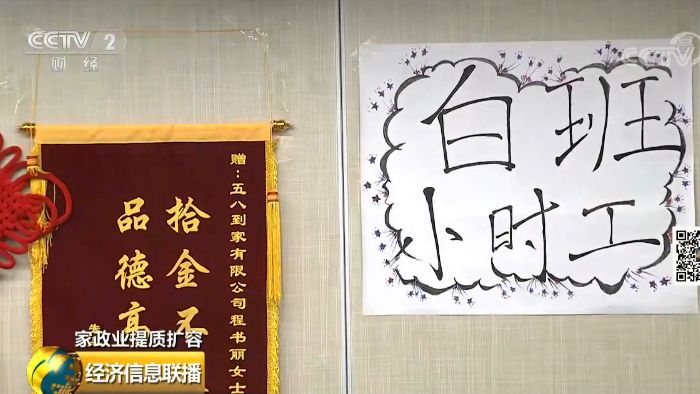 CCTV 2
财经
赠：五八到家有限公司程书丽女士
拾金不
品德高
白班
小时工
家政业提质扩容
经济信息联播